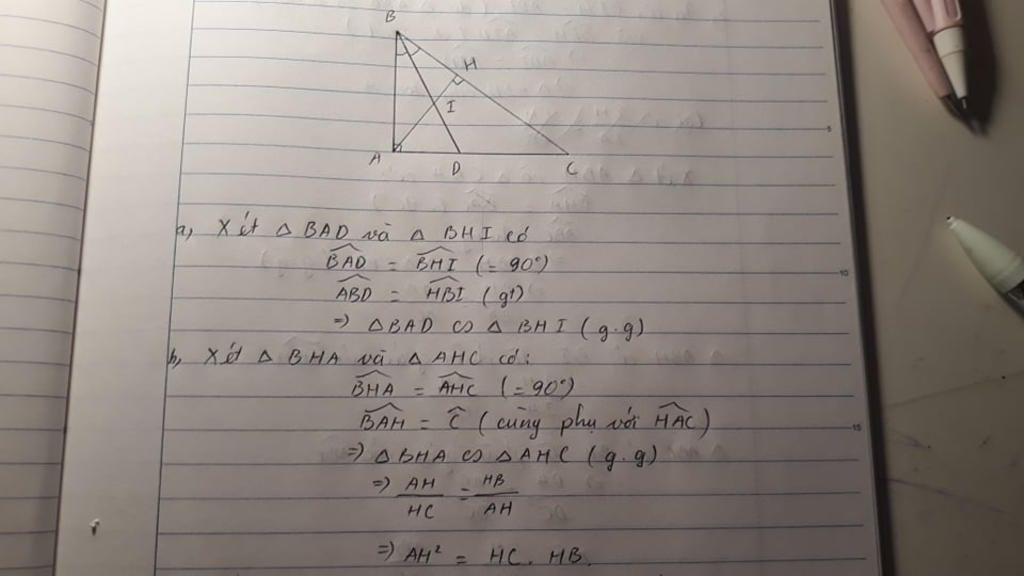 B
H
I
A D C
5
a, Xét △ BAD và △ BHI có
$\widehat{BAD}$ = $\widehat{BHI}$ (= 90°)
10
$\widehat{ABD}$ = $\widehat{HBI}$ (gt)
=) △BAD ∽ △ BHI (g.g)
b, Xét △ BHA và △ AHC có:
$\widehat{BHA}$ = $\widehat{AHC}$ (= 90°)
$\widehat{BAH}$ = $\widehat{C}$ (cùng phụ với $\widehat{HAC}$)
15
=) △BHA ∽ △AHC (g.g)
=) $\frac{AH}{HC}$ = $\frac{HB}{AH}$
=) AH² = HC. HB.